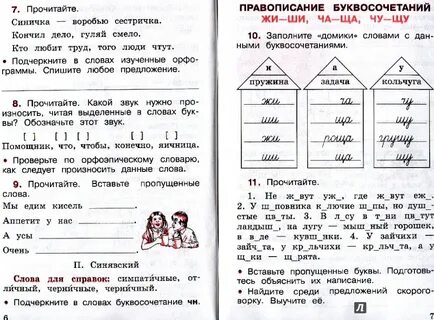 7. Прочитайте.
Синичка — воробью сестричка.
Кончил дело, гуляй смело.
Кто любит труд, того люди чтут.
• Подчеркните в словах изученные орфо-
граммы. Спишите любое предложение.
8. Прочитайте. Какой звук нужно произно-
сить, читая выделенные в словах бук-
вы? Обозначьте этот звук.
[ ] [ ] [ ] [ ] [ ]
Помощник, что, чтобы, конечно, яичница.
• Проверьте по орфоэпическому словарю,
как следует произносить данные слова.
9. Прочитайте. Вставьте пропущенные
слова.
Мы едим кисель
Аппетит у нас —
А усы —
Очень
П. Синявский
Слова для справок: симпатичные, от-
личный, черничные, черничный.
• Подчеркните в словах буквосочетание чн.
6
ПРАВОПИСАНИЕ БУКВОСОЧЕТАНИЙ
ЖИ—ШИ, ЧА—ЩА, ЧУ—ЩУ
10. Заполните „домики" словами с дан-
ными буквосочетаниями.
и а у
пружина задача кольчуга
жи ча чу
ши ща щу
жи роща грущу
ши ща щу
11. Прочитайте.
1. Не ж_вут уж_, где ж_вут еж_.
2. У ш_повника к_лючие ш_пы, но душ_-
стые цв_ты. 3. В л_су в т_ни цв_тут
ландыш_, на лугу — мыш_ный горошек,
в в_де — кувш_нки. 4. У зайчихи —
зайч_та, у крольчихи — кр_льч_та, а у
щ_ки — щ_рята.
• Вставьте пропущенные буквы. Подготовь-
тесь объяснить их написание.
• Найдите среди предложений скорого-
ворку. Выучите её.
7